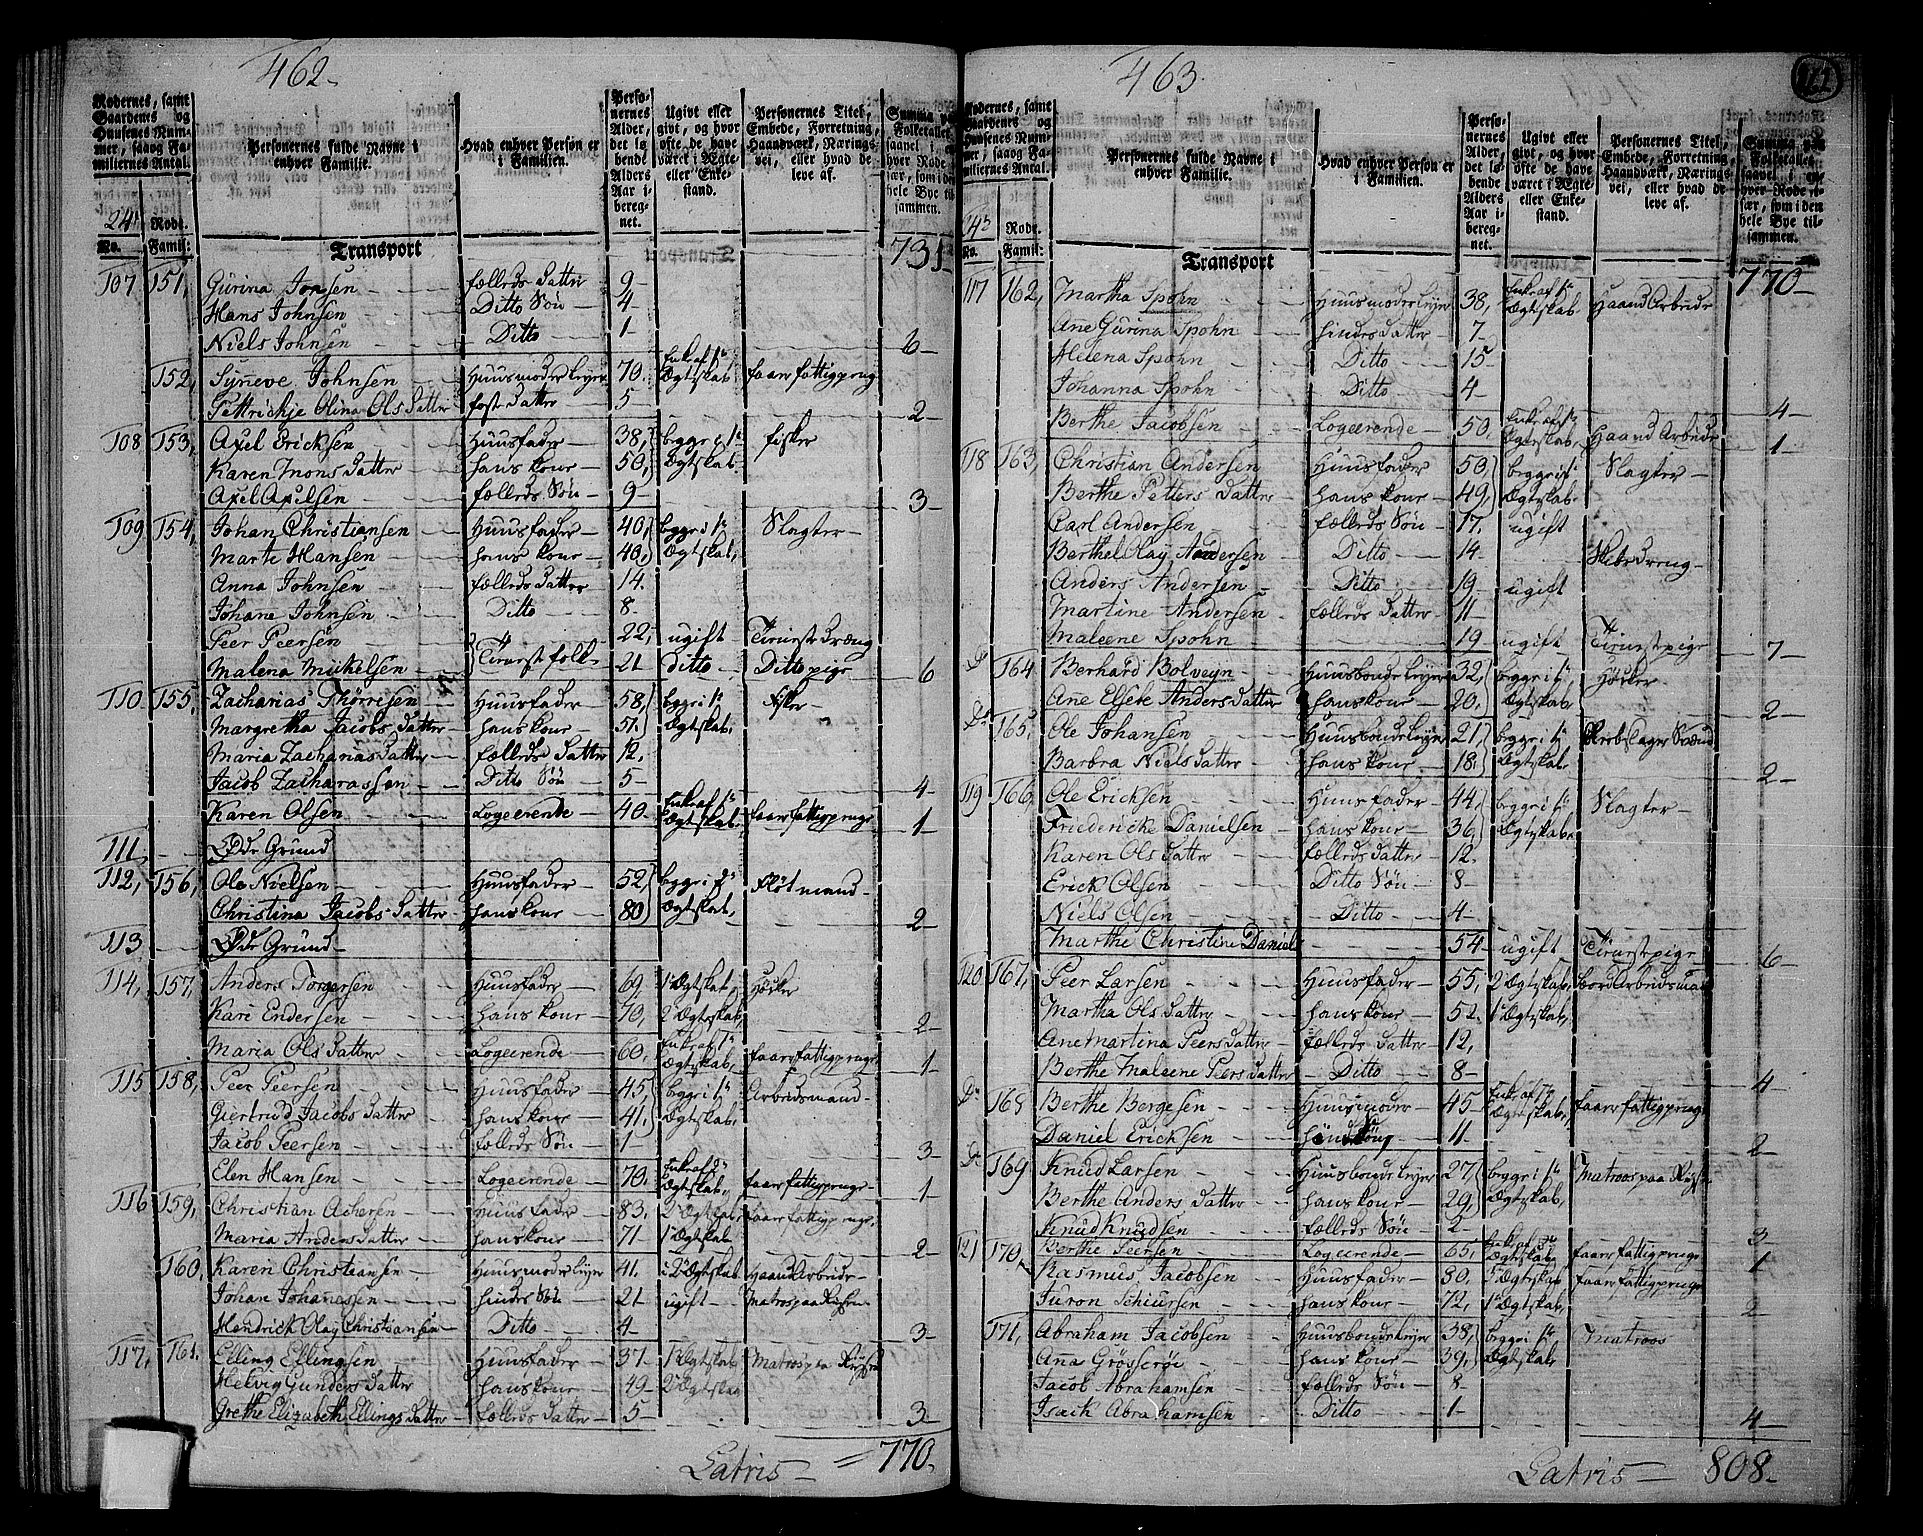 462.
Rodernes, samt Gaardenes og Huusenes Nummer, saavog Familiernes Antal.
Personernes fulde Navne i enhver Familie.
Hvad enhver Person er i Familien.
Personernes Alder, det løbende Alders Aar iberegnet.
Ugivt eller givt, og hvor ofte de have været i Ægte- eller Enkestand.
Personernes Titel, Embede, Forretning, Haandværk, Næringsvei, eller hvad de leve af.
24 Rode.
No. Famil:
Transport 731
107 151, Gurina Jonsen fælleds Datter 9
Hans Johnsen Ditto Søn 4
Niels Johnsen Ditto 1 6
152, Syneve Johnsen Huusmoder 70. Enke af 1te Ægtskab faaer fattigpenge
Pettrickje Olina Ols Datter fost Datter 5 2
108 153, Axel Ericksen Huusfader 38, begge i 1te fisker
Karen Mons Datter hans kone 50, Ægtskab
Axel Axelsen fælleds Søn 9 3
109 154, Johan Christiansen Huusfader 40, begge i 1te Slagter
Marte Hansen hans kone 40, Ægtskab
Anna Johnsen fælleds Datter 14.
Johane Johnsen Ditto 8
Peer Peersen Tienestfolk 22, ugift Tienestdræng
Malena Mickelsen 21 ditto Ditto pige 6
110 155, Zacharias Thørresen Huusfader 58, begge i 1te fisker
Margretha Jacobs Datter hans kone 51. Ægtskab
Maria Zacharias Datter fælleds Datter 12.
Jacob Zacharassen Ditto Søn 5 4
Karen Olsen Logeerende 40. Enke af 1te Ægtskab faaer fattigpenge 1
111 Øde Grund
112, 156, Ole Nielsen Huusfader 52, begge i 1te Fløtmand
Christina Jacobs Datter hans kone 80 Ægtskab, 2
113 Øde Grund
114, 157, Anders Torgersen Huusfader 69, 1te Ægtskab, Høcker
Kari Endersen hans kone 70, 2 Ægtskab, 2
Maria Ols Datter Logeerende 60, Enke af 1te Ægtskab, faaer fattigpenge 1
115 158, Peer Peersen Huusfader 45, begge i 1te Arbeidsmand
Giertrud Jacobs Datter hans kone 41. Ægtskab
Jacob Peersen fælleds Søn 1 3
Elen Hansen Logeerende 70. Enke af Ægtskab, faaer fattigpenge 1
116 159, Christian Acheren Huusfader 83. 2 Ægtskab, faaer fattigpenge,
Maria Anders Datter hans kone 71 1te Ægtskab 2
160, Karen Christiansen Huusmoder 41. i 2 Ægtskab Haand Arbeide
Johan Johanessen hindes Søn 21 ugift Matros paa
Hendrick Olay Christiansen Ditto 4 3
117, 161. Elling Ellingsen Huusfader 37 1te Ægtskab Matros paa
Helvig Gunders Datter hans kone 49 2 Ægtskab
Grethe Elizabeth Ellings Datter fælleds Datter 5 3
Latris = 770.
463.
Rodernes, samt Gaardenes og Huusenes Nummer, saavog Familiernes Antal.
Personernes fulde Navne i enhver Familie.
Hvad enhver Person er i Familien.
Personernes Alder, det løbende Alders Aar iberegnet.
Ugivt eller givt, og hvor ofte de have været i Ægte- eller Enkestand.
Personernes Titel, Embede, Forretning, Haandværk, Næringsvei, eller hvad de leve af.
Summa paa Folketallet, saavel i enhver Rode især, som i den hele Bye tilsammen.
24 Rode.
No. Famil:
Transport 770
117 162, Martha Spohn Huusmoder 38, Enke af 1te Ægtskab Haand Arbeide
Ane Gurina Spohn hindes Datter 7
Helena Spohn Ditto 15
Johanna Spohn Ditto 4 4
Berthe Jacobsen Logeerende 50, Enke af 1te Ægtskab, Haand Arbeide 1
118 163, Christian Andersen Huusfader 50 begge i 1te Slagter
Berthe Petters Datter hans kone 49, Ægtskab
Carl Andersen fælleds Søn 17, ugift
Berthel Olay Andersen Ditto 14
Anders Andersen Ditto 19 ugift
Martine Andersen fælleds Datter 11
Maleene Spohn 19 ugift Tienestpige 7
Do 164 Berhard Bolveyn Huusbonde 32, begge i 1te Høcker
Ane Elsebe Anders Datter hans kone 20. Ægtskab 2
Do 165, Ole Johansen Huusbonde 21, begge i 1te Reebslager Svend
Barbra Niels Datter hans kone 18 Ægtskab 2
119 166, Ole Ericksen Huusfader 44, begge i 1te Slagter
Friedericke Danielsen hans kone 36, Ægtskab
Karen Ols Datter fælleds Datter 12.
Erick Olsen Ditto Søn 8
Niels Olsen Ditto 4
Marthe Christine Daniel 54 ugift Tienestpige 6
120 167, Peer Larsen Huusfader 55, 2 Ægtskab,
Martha Ols Datter hans kone 52. 1te Ægtskab,
Ane Martina Peers Datter fælleds Datter 12,
Berthe Maleene Peers Datter Ditto 8 4
Do 168 Berthe Bergesen Huusmoder 45 Enke af Ægtskab, faaer fattigpenge
Daniel Ericksen 11 2
Do 169 Knud Larsen Huusbonde 27, begge i 1te Matros paa
Berthe Anders Datter hans kone 29, Ægtskab,
Knud Knudsen fælleds Søn 2 3
Berthe Peersen Logeerende 65, Enke af Ægtskab faaer fattigpenge 1
121 170 Rasmus Jacobsen Huusfader 80. Ægtskab faaer fattigpenge
Juron Schiursen hans kone 72, 1te Ægtskab, 2
171, Abraham Jacobsen Huusbonde 38, begge i 1te Matroos
Ana Grösserøe hans kone 39, Ægtskab
Jacob Abrahamsen fælleds Søn 8
Isack Abrahamsen Ditto 1 4
Latris 808